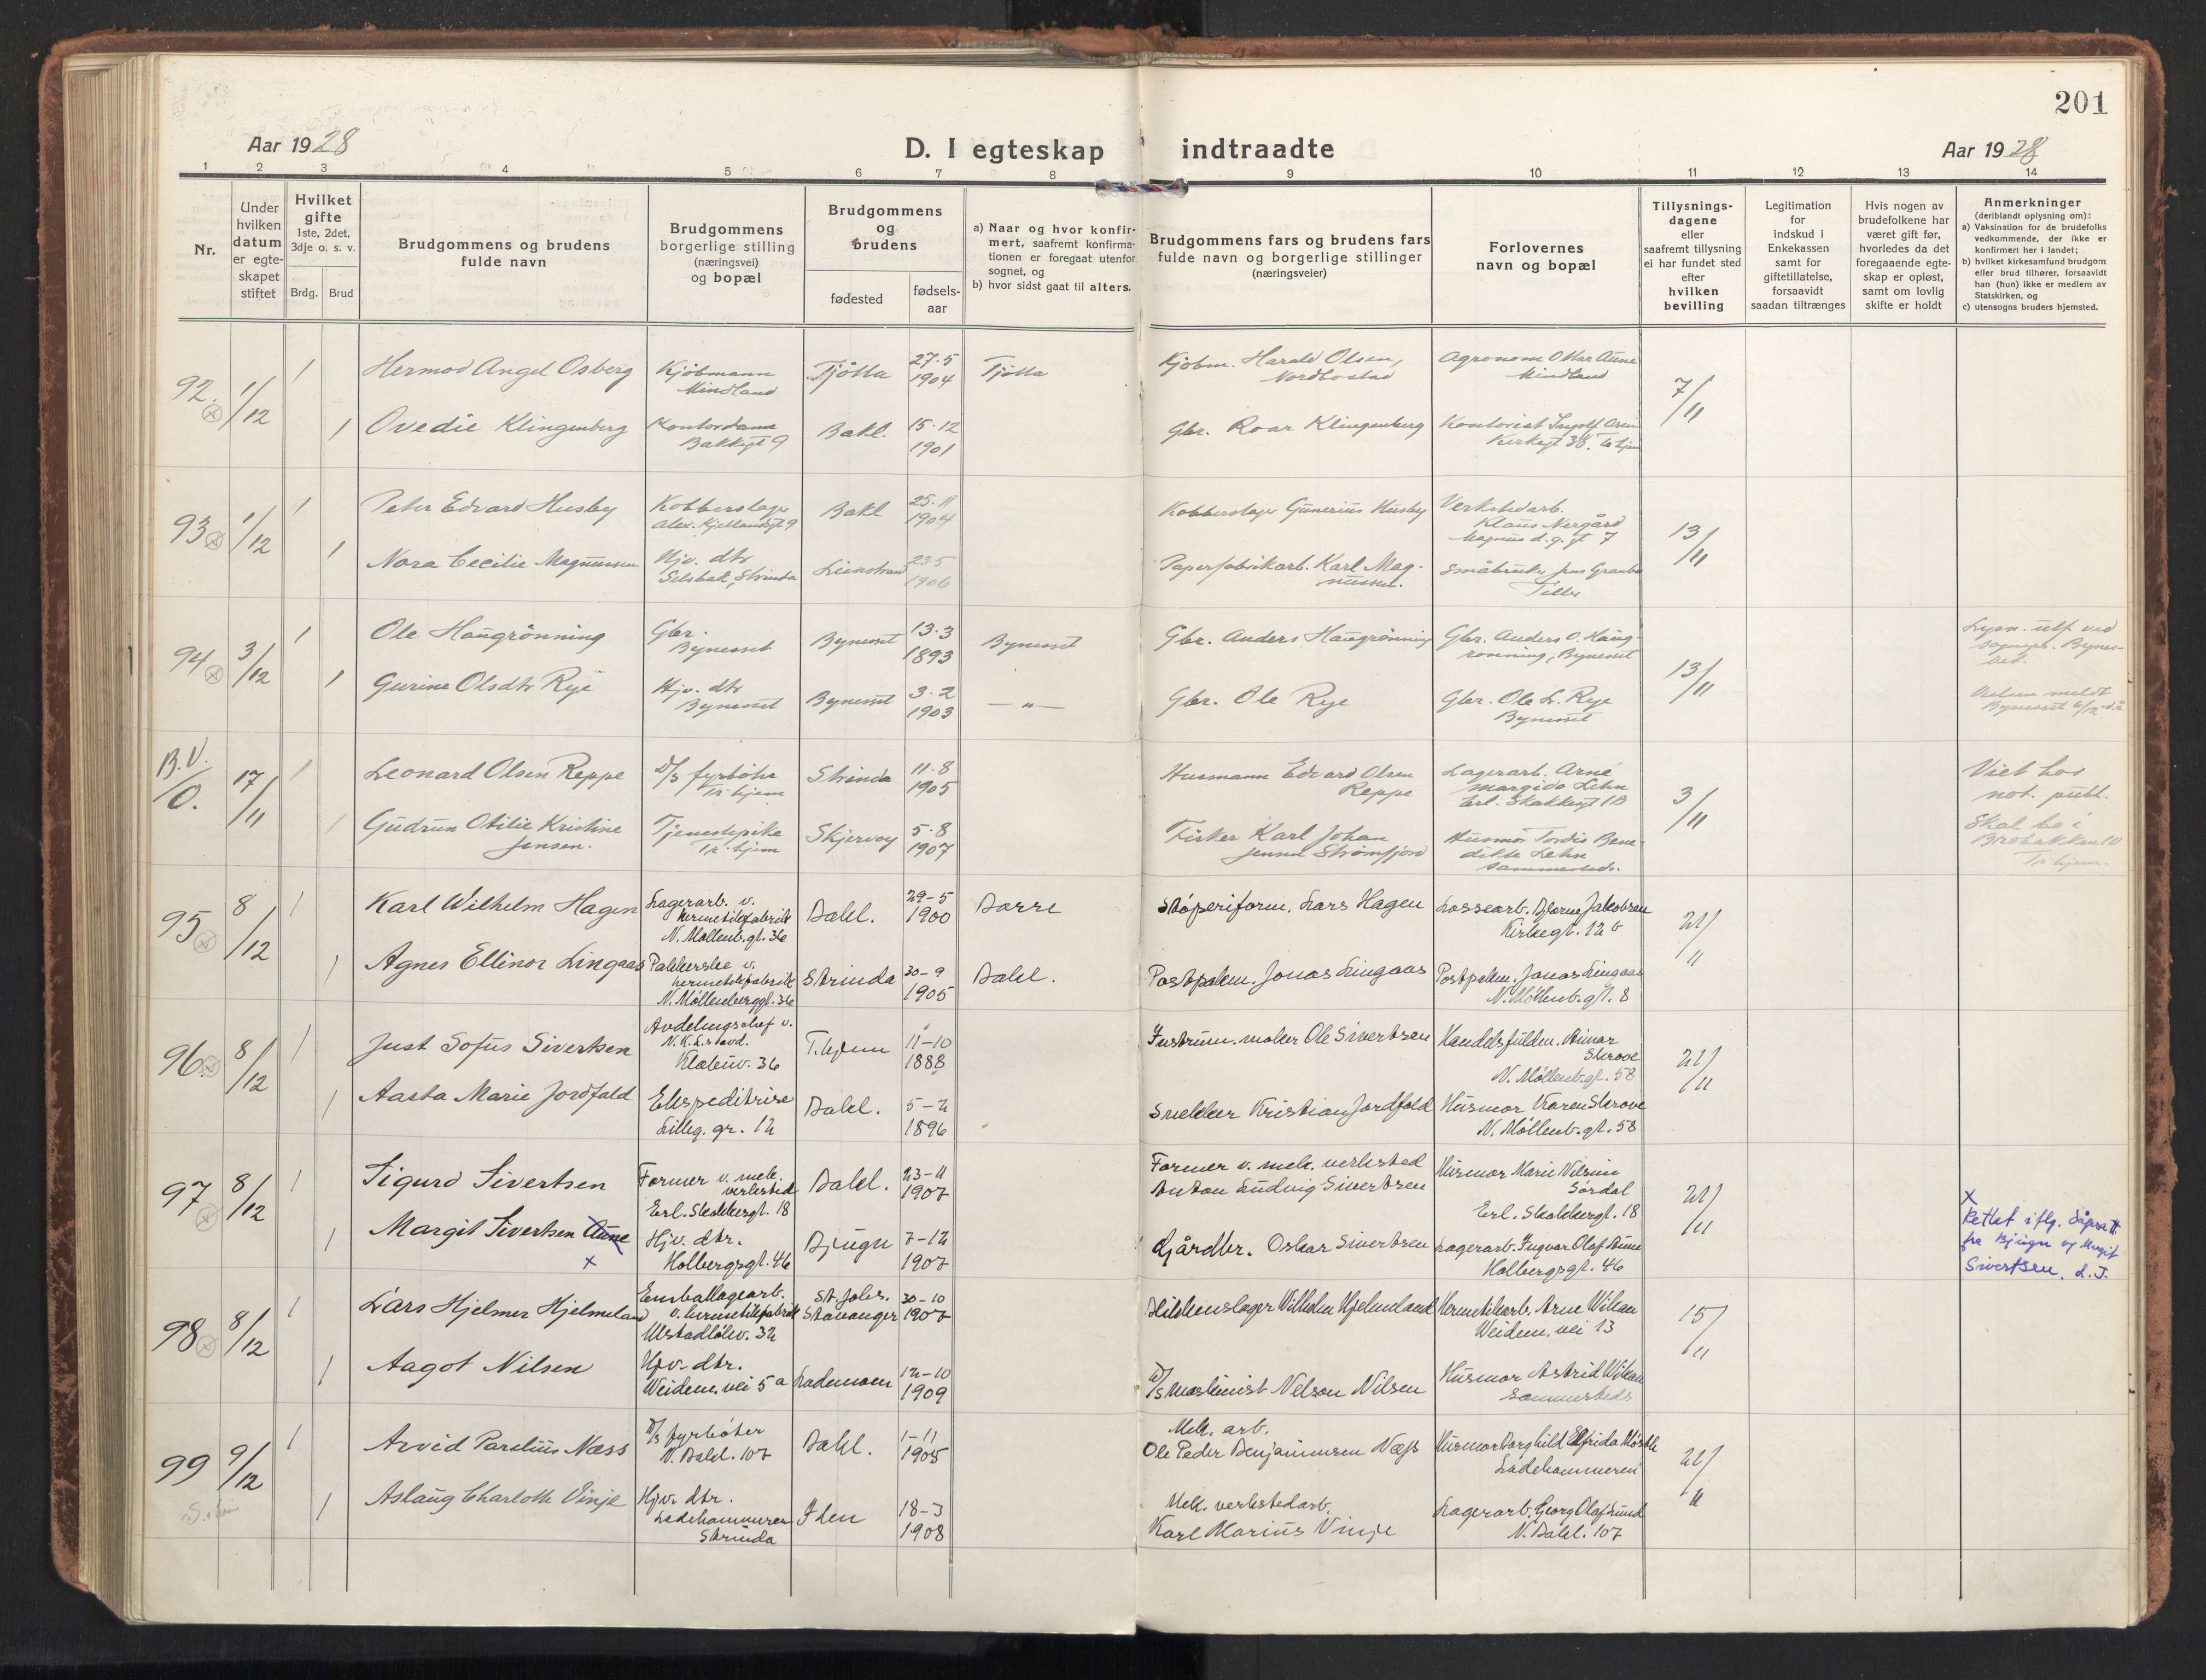 201
Aar 1928
D. I egteskap indtraadte
Aar 1928
1 2 3 4 5 6 7 8 9 10 11 12 13 14
Nr.
Under
hvilken
datum
er egte-
skapet
stiftet
Hvilket
gifte
1ste, 2det,
3dje o. s. v.
Brdg. Brud
Brudgommens og brudens
fulde navn
Brudgommens
borgerlige stilling
(næringsvei)
og bopæl
Brudgommens
og
brudens
fødested
fødsels-
aar
a) Naar og hvor konfir-
mert, saafremt konfirma-
tionen er foregaat utenfor
sognet, og
b) hvor sidst gaat til alters.
Brudgommens fars og brudens fars
fulde navn og borgerlige stillinger
(næringsveier)
Forlovernes
navn og bopæl
Tillysnings-
dagene
eller
saafremt tillysning
ei har fundet sted
efter
hvilken
bevilling
Legitimation
for
indskud i
Enkekassen
samt for
giftetillatelse,
forsaavidt
saadan tiltrænges
Hvis nogen av
brudefolkene har
været gift før,
hvorledes da det
foregaaende egte-
skap er opløst,
samt om lovlig
skifte er holdt
Anmerkninger
(deriblandt oplysning om):
a) Vaksination for de brudefolks
vedkommende, der ikke er
konfirmert her i landet;
b) hvilket kirkesamfund brudgom
eller brud tilhører, forsaavidt
han (hun) ikke er medlem av
Statskirken, og
c) utensogns bruders hjemsted.
92. 1/12
1
Hermod Angel Osberg
Kjöbmann
Mindland
Tjötta
27.5
1904
Tjötta
Kjöbm. Harald Olsen,
Nordbostad
Agronom Ottar Aune
Mindland
7/11
1
Ovedie Klingenberg
Kontordame
Bakkegt 9
Bakl.
15.12
1901
Gbr. Roar Klingenberg
Kontorist Ingolf
Kirkegt 38, Tr.hjem
93 1/12
1
Peter Edvard Husby
Kobberslager
Alex. Kjellandsgt 9
Bakl
25.11
1904
Kobberslager Gunerius Husby
Verkstedarb.
Klaus Nergård
Magnus d. g. gt 7
13/11
1
Nora Cecilie Magnussen
Hjv. dtr
Selsbak, Strinda
Leinstrand
23.5
1906
Papirfabrikarb. Karl Mag-
nussen.
Småbruker Jens
Tiller
94 3/12
1
Ole Haugrönning
Gbr.
Bynesset
Bynesset
13.3
1893
Bynesset
Gbr. Anders Haugrönning
Gbr. Anders O. Haug-
rönning, Bynesset
13/11
Lysn. utf. ved
sognepr. Bynes-
set.
1
Gurine Olsdtr Rye
Hjv. dtr
Bynesset
Bynesset
3.2
1903
— " —
Gbr. Ole Rye
Gbr. Ole L. Rye
Bynesset
Vielsen meldt
Bynesset 6/12 d.å
B.V./O. 17/11
1
Leonard Olsen Reppe
D/S fyrböter
Tr.hjem
Strinda
11.8
1905
Husmann Edvard Olsen
Reppe
Lagerarb. Arne
Margido Lehn
Erl. Skakkesgt 18
3/11
Viet hos
not. publ.
1
Gudrun Otilie Kristine
Jensen.
Tjenestepike
Tr.hjem
Skjervoy
5.8
1907
Fisker Karl Johan
Jensen Strömfjord
Husmor Tordis Bene
dikte Lehn
sammesteds.
Skal bo i
Brobakken 10
Tr.hjem.
95 8/12
1
Karl Wilhelm Hagen
Lagerarb. v.
hermetikfabrikk
N. Möllenb.gt. 36
Bakl.
29-5
1900
Borre
Stöperiform. Lars Hagen
Lossearb. Bjarne Jakobsen
Kirkegt. 12 b
21/11
1
Agnes Ellinor Lingaas
Pakkerske v.
hermetikfabrikk
N. Möllenberggt. 36
Strinda
30-9
1905
Bakl.
Postpakm. Jonas Lingaas
Postpakm. Jonas Lingaas
N. Möllenb.gt. 8
96 8/12
1
Just Sofus Sivertsen
Avdelingschef v.
Klæbuv. 36
T.hjem
11-10
1888
Instrum.maker Ole Sivertsen
Handelsfuldm. Einar
Skrove
N. Möllenb.gt. 58
21/11
1
Aasta Marie Jordfald
Ekspeditrise
Lilleg. gr. 12
Bakl.
5-2
1896
Snekker Kristian Jordfald
Husmor Karen Skrove
N. Möllenb.gt. 58
97 8/12
1
Sigurd Sivertsen
Former v. mek.
verksted
Erl. Skakkesgt. 18
Bakl.
23-11
1907
Former v. mek. verksted
Anton Ludvig Sivertsen
Husmor Marie Nilsen
Sördal
Erl. Skakkesgt. 18
21/11
1
Margit Sivertsen Aune
x
Hjv. dtr.
Holbergsgt. 46
Bjugn
7-12
1907
Gårdbr. Oskar Sivertsen
Lagerarb. Ingvar Olaf Aune
Holbergsgt. 46
x
Rettet iflg. dåpsatt
fra Bjugn og Margit
Sivertsen. L.J.
98 8/12
1
Lars Hjelmer Hjelmeland
Emballagearb.
v. hermetikfabrik
Ulstadlökv. 32
St. Johs.
Stavanger
30-10
1907
Blikkenslager Wilhelm Hjelmeland
Hermetikarb. Arne Wikan
Weidem. vei 13
15/11
1
Aagot Nilsen
Hjv. dtr.
Weidem. vei 5 a
Lademoen
12-10
1909
D/S Maskinist Nelson Nilsen
Husmor Astrid Wikan
Sammesteds
99 9/12
1
Arvid Parelius Næss
D/S fyrböter
N. Bakl. 107
Bakl.
1-11
1905
Mek. arb.
Ole Peder Benjaminsen Næss
Husmor Borghild Elfrida
Ladehammeren
21/11
1
Aslaug Charlotte Vinje
Hjv. dtr.
Ladehammeren
Strinda
Ilen
18-3
1908
Mek. verkstedarb.
Karl Marius Vinje
Lagerarb. Georg Olaf Lund
N. Bakl. 107